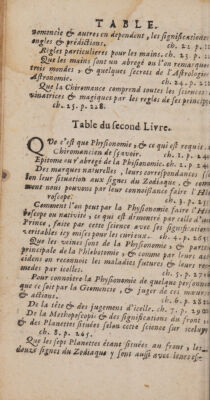 TABLE.
nomencie & autres en dependent, les significations
ongles & predictions.
ch. 22. p.
Regles particulieres pour les mains. ch. 23. p.
Que les mains sont un abregé ou l'on remarque
trois mondes, & quelques secrets de l'Astrologie
Astronomie.
ch. 24. p.
Que la Chiromance comprend toutes les sciences
vinatrices & magiques par les regles de ses principes
ch. 25. p. 228.
Table du second Livre.
Que c'est que Physionomie, & ce qui est requis
Chiromancien de sçavoir. ch. 1. p.
Epitome ou l'abregé de la Phisionomie. ch. 2. p.
Des marques naturelles, leurs correspondances
leur situation aux signes du Zodiaque, &
ment nous pouvons par leur connoissance faire l'
roscope.
ch. 3. p.
Comment l'on peut par la Phisionomie faire l'
scope ou nativité, ce qui est dimontré par celle d'un
Prince, faite par cette science avec ses significations
veritables icy mises pour les curieux. ch. 4. p. 261.
Que les veines sont de la Phisionomie, & partie
principale de la Phlebotomie, & comme par leurs
cidens on reconnoit les maladies futures, & leurs
medes par icelles.
ch. 5. p.
Pour connoitre la Phisionomie de quelque personne
que ce soit par la Geomence, & juger de ces mœurs
& actions.
ch. 6. p.
De la téte & des jugemens d'icelle. ch. 7. p.
De la Methoposcopie & des significations du front,
& des Planettes situées selon cette science sur iceluy
ch. 8. p. 265.
Que les sept Planettes étant situées au front, les
douze signes du Zodiaque y sont aussi avec leurs